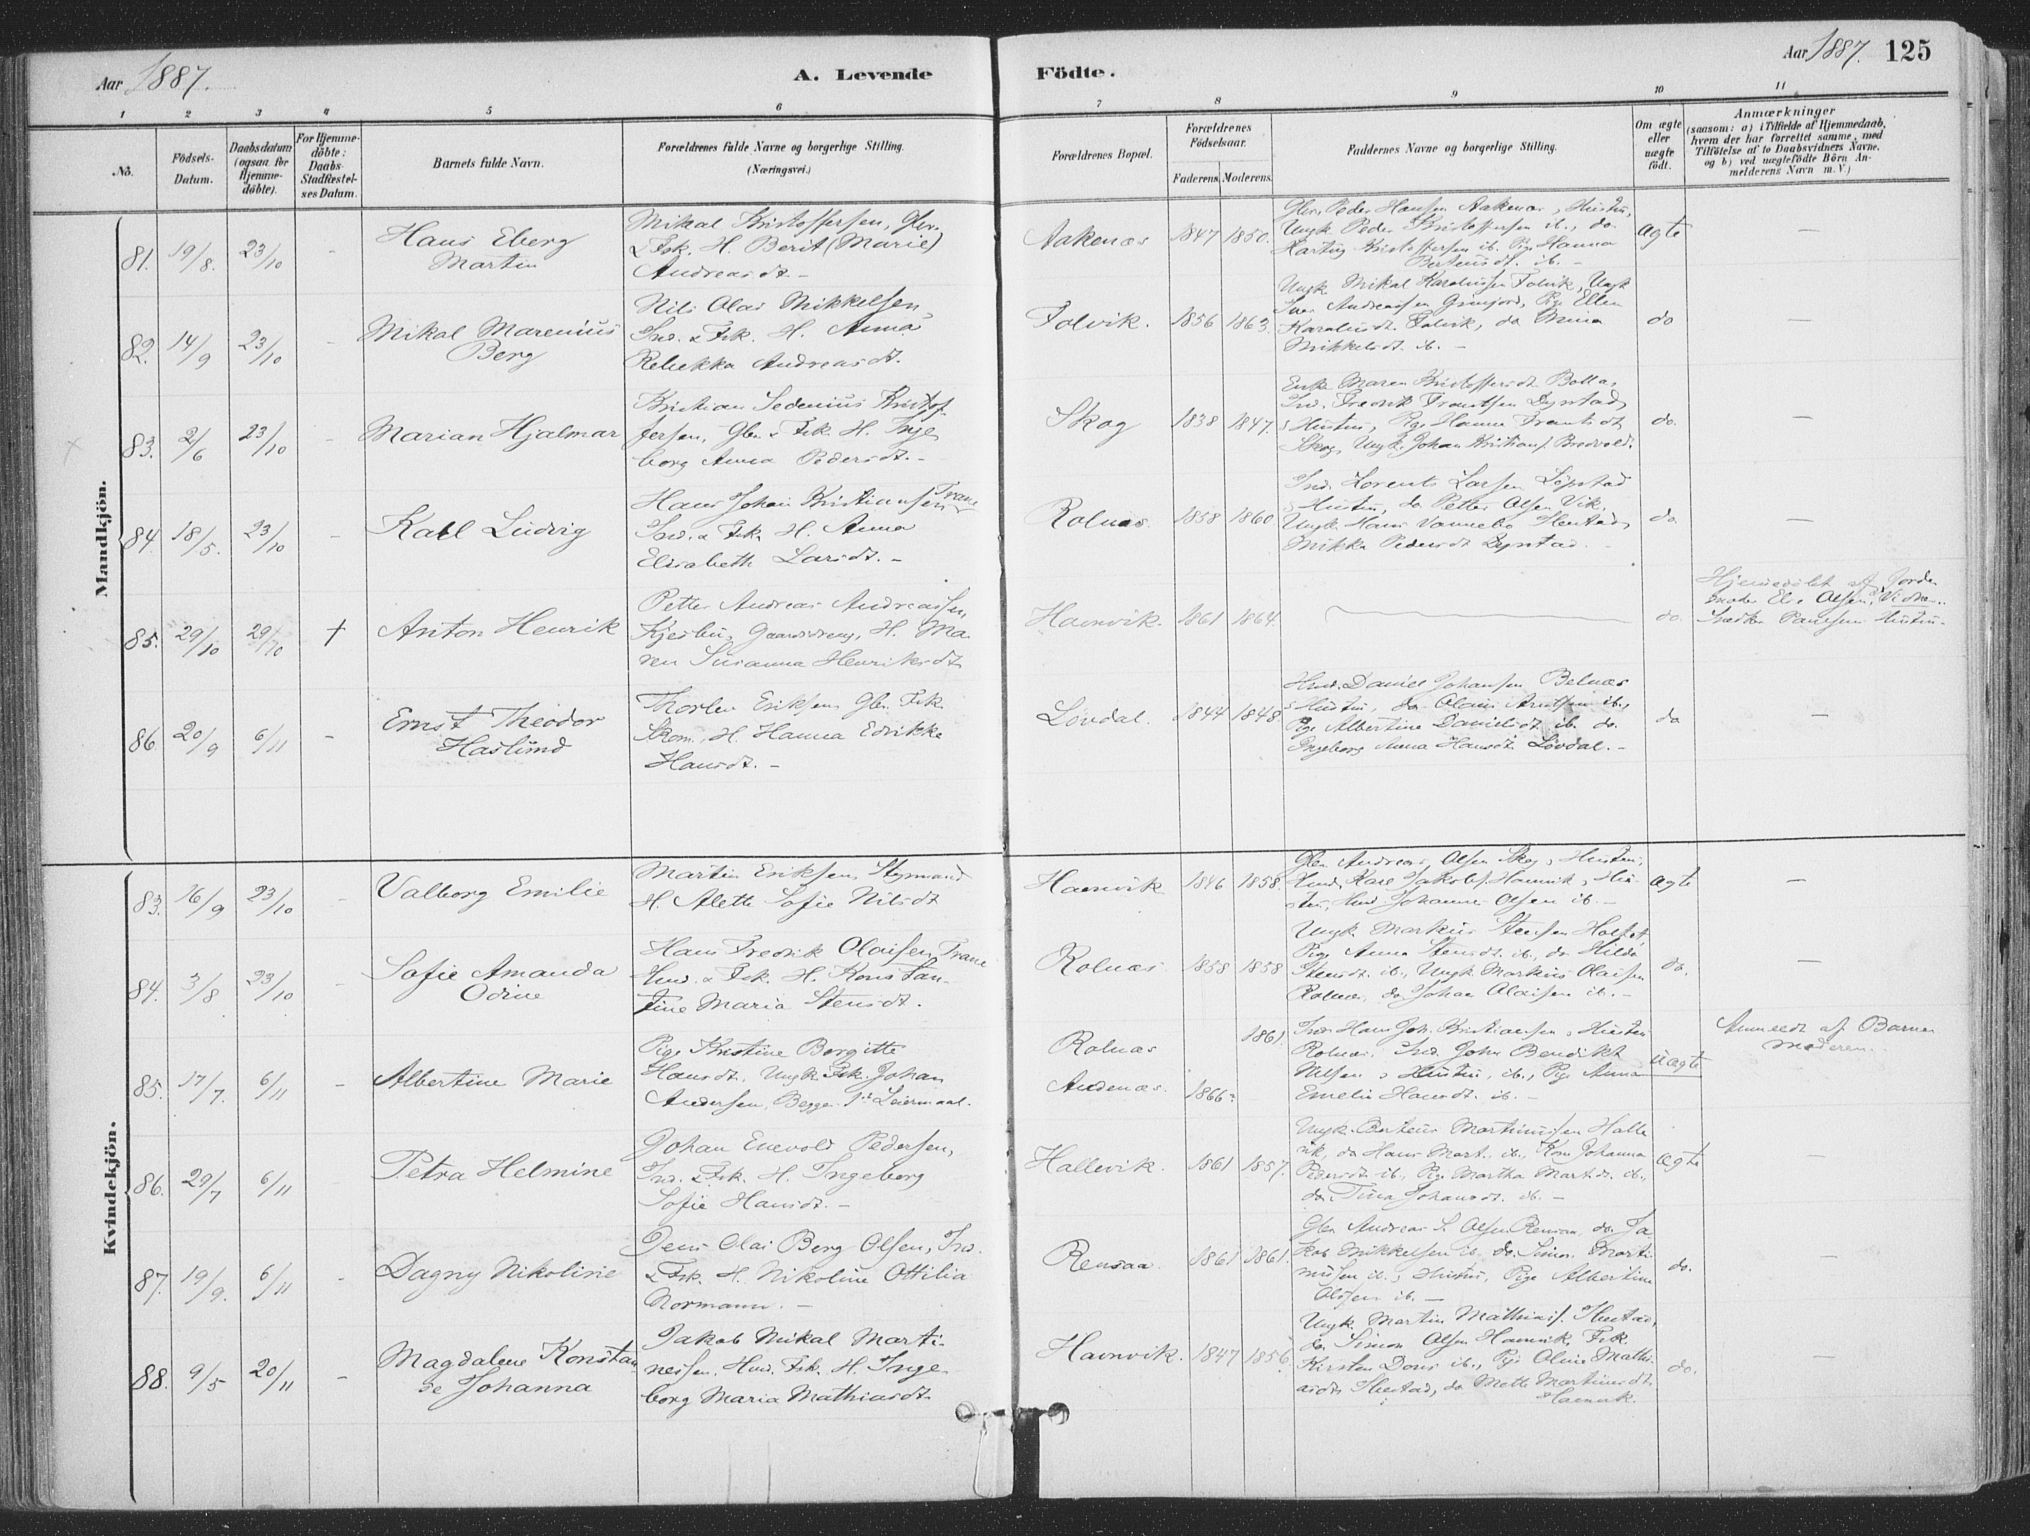 Aar 1887.
A. Levende
Födte.
Aar 1887. 125
1 2 3 4 5 6 7 8 9 10 11
No.
Födsels-Datum.
Daabsdatum (ogsaa for Hjemme-döbte).
For Hjemme-döbte: Daabs-Stadfæstel-ses Datum.
Barnets fulde Navn.
Forældrenes fulde Navne og borgerlige Stilling.
(Næringsvei.)
Forældrenes Bopæl.
Forældrenes Födselsaar.
Faderens. Moderens.
Faddernes Navne og borgerlige Stilling.
Om ægte eller uægte födt.
Anmærkninger
(saasom: a) i Tilfælde af Hjemmedaab, hvem der har forrettet samme, med Tilföielse af to Daabsvidners Navne, og b) ved uægtefödte Börn An-melderens Navn m. V.)
Mandkjön.
81. 19/8. 23/10 -
Hans Eberg
Martin
Mikal Kristoffersen, Gbr.
& Fsk. H. Berit (Marie)
Andreasdt. -
Aakenæs 1847 1850.
Gbr. Peder Hansen Aakenæs, s Hustru,
Ungk. Peder Kristoffersen ib., do.
Hartvig Kristoffersen ib. Pige Hanna
Berteusdt. ib. -
ægte -
82. 14/9 23/10 -
Mikal Marenius
Berg
Nils Olai Mikkelsen,
Ind. & Fsk. H. Anna
Rebekka Andreasdt.
Folvik. 1856 1863.
Ungk. Mikal Karolussen Folvik, Ungk
Andreassen Grimjord, Pige Ellen
Karolusdt. Folvik, do Mina
Mikkelsdt. ib. -
do -
83. 2/6 23/10 -
Marian Hjalmar
Kristian Sedenius Kristof-
fersen, Gbr. & Fsk. H. Inge
borg Anna Pedersdt. -
Skog 1838 1847.
Enke Maren Kristoffersdt. Bolla,
Ind. Fredrik Frantsen Dyrstad,
s Hustru, Pige Hanna Frantsdt
Skog, Ungk. Johan Kristians. Bredvold.
do. -
84. 18/5. 23/10 -
Karl Ludvig
Hans Johan Kristiansen Trane
Ind. & Fsk. H. Anna
Elisabeth Larsdt. -
Rolnæs 1858 1860
Ind. Lorents Larsen Löpstad
s Hustru, do Petter Olsen Vik,
Ungk. Hans Vannebo Hustad,
Mikka Pedersdt Dyrstad. -
do. -
85. 29/10 29/10 +
Anton Henrik
Petter Andreas Andreassen,
Kjerbu, Gaardsdreng, H. Ma-
ren Susanna Henriksdt.
Havnvik. 1861 1864.
do.
Hjemmedöbt af Jorde
moder Else Olsen, Vidne.
86 20/9 6/11 -
Ernst Theodor
Haslund
Thorler Eriksen Gbr. Fsk
Skom. H. Hanna Edrikke
Hansdt. -
Lövdal. 1844 1848
Hmd. Daniel Johansen Belnæs
s Hustru, do Olaus Arntsen ib.,
Pige Albertine Danielsdt ib. do.
Ingeborg Anna Hansdt Lövdal. -
do -
Kvindekjön.
83. 16/9 23/10 -
Valborg Emilie
Martin Eriksen, Styrmand
H. Alette Sofie Nilsdt
Havnvik 1846 1858.
Gbr. Andreas Olsen Skog, s Hustru,
Hmd. Karl Jakobs. Havnvik, s Hu-
stru, Hmd Johannes Olsen ib. -
ægte -
84. 3/8 23/10 -
Sofie Amanda
Odine
Hans Fredrik Olaisen Trane
Hmd. & Fsk. H. Konstan-
tine Maria Stensdt.
Rolnæs 1858 1858
Ungk. Markus Stensen
Pige Anna Stensdt. ib., do Hilda
Stensdt. ib., Ungk Markus Olaisen
Rolnæs, do Johan Olaisen ib. -
do. -
85. 17/7. 6/11 -
Albertine Marie
Pige Kristine Borgitte
Hansdt. Ungk. Fsk. Johan
Andersen, Begges 1ste Leiermaal.
Rolnæs
Andenæs.
1866. 1861.
Ind. Hans Joh. Kristiansen, s Hustru
Rolnæs. Ind. John Bendikt
Nilsen, s Hustru, ib., Pige Anna
Emelie Hansdt. ib. -
uægte
Anmeldt af Barne
moderen.
86. 29/7 6/11 -
Petra Helmine
Johan Enevold Pedersen,
Ind. & Fsk. H. Ingeborg
Sofie Hansdt. -
Hallevik. 1861 1857.
Ungk. Berteus Martinussen Halle
vik, do Hans Mart. ib., Kone Johanna
Pedersdt ib., Pige Martha Mart.dt. ib.,
do. Tina Johansdt. ib. -
ægte -
87. 19/9. 6/11 -
Dagny Nikoline
Jens Olai Berg Olsen, Ind.
& Fsk. H. Nikoline Ottilia
Normann. -
Rensaa 1861 1861.
Gbr Andreas S. Olsen Rensaa, do. Ja
kob Mikkelsen ib., do. Simon Marti
nussen ib., s Hustru, Pige Albertine
Olsen ib. -
do. -
88. 9/5 20/11 -
Magdalene Konstan
se Johanna
Jakob Mikal Marti-
nessen. Hmd. Fsk. H. Inge
borg Maria Mathiasdt.
Havnvik. 1847 1856.
Ungk. Martin Mathias. Hustad,
do. Simon Olsen Havnvik, Fsk.
Kirsten Dons ib., Pige Oline Mathi-
asdt Hustad, do Mette Martinusdt
Havnvik.
do. -